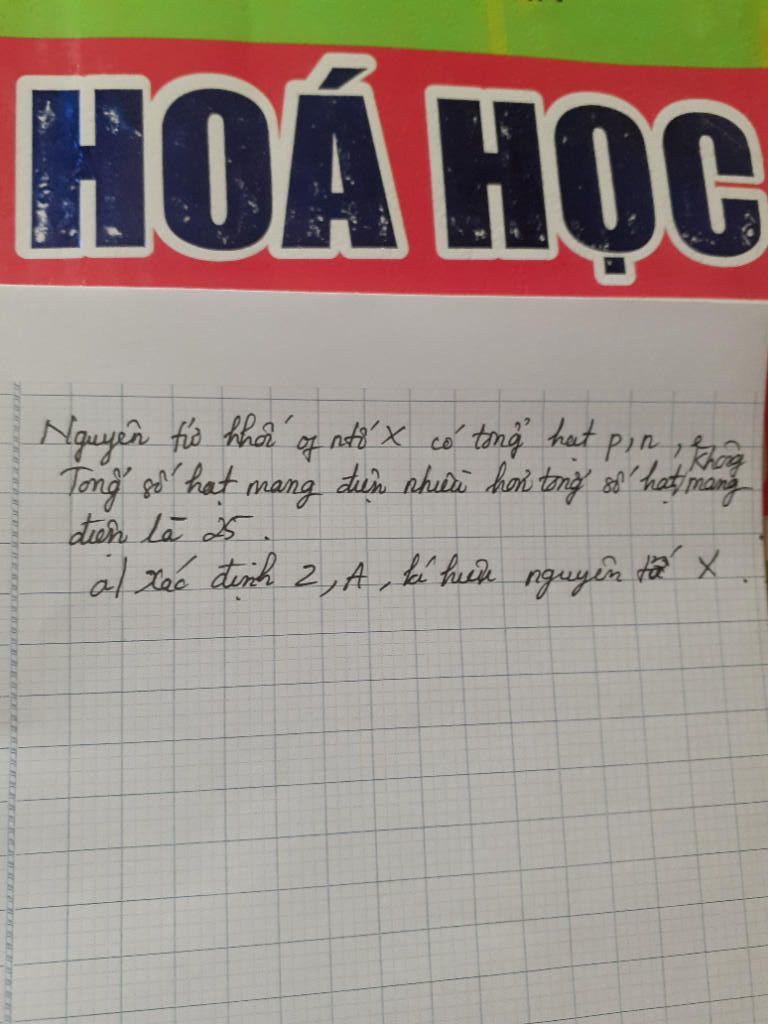 HOÁ HỌC
Nguyên tử khối of ntố X có tổng hạt p, n, e.
Tổng số hạt mang điện nhiều hơn tổng số hạt không mang
điện là 25.
a/ Xác định Z, A, kí hiệu nguyên tố X.